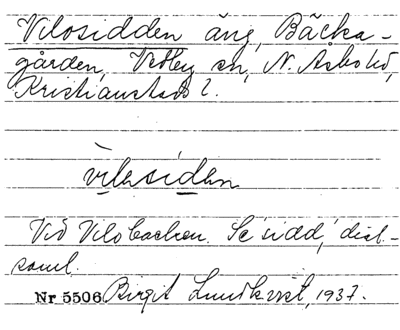 Vilosidden äng, Bäcka-
gården, Vedby sn, N. Åsbo hd,
Kristianstads l.
vilesiden
Vid Vilobacken. Se sidd, dial-
saml.
Nr 5506 Birgit Lundkvist, 1937.